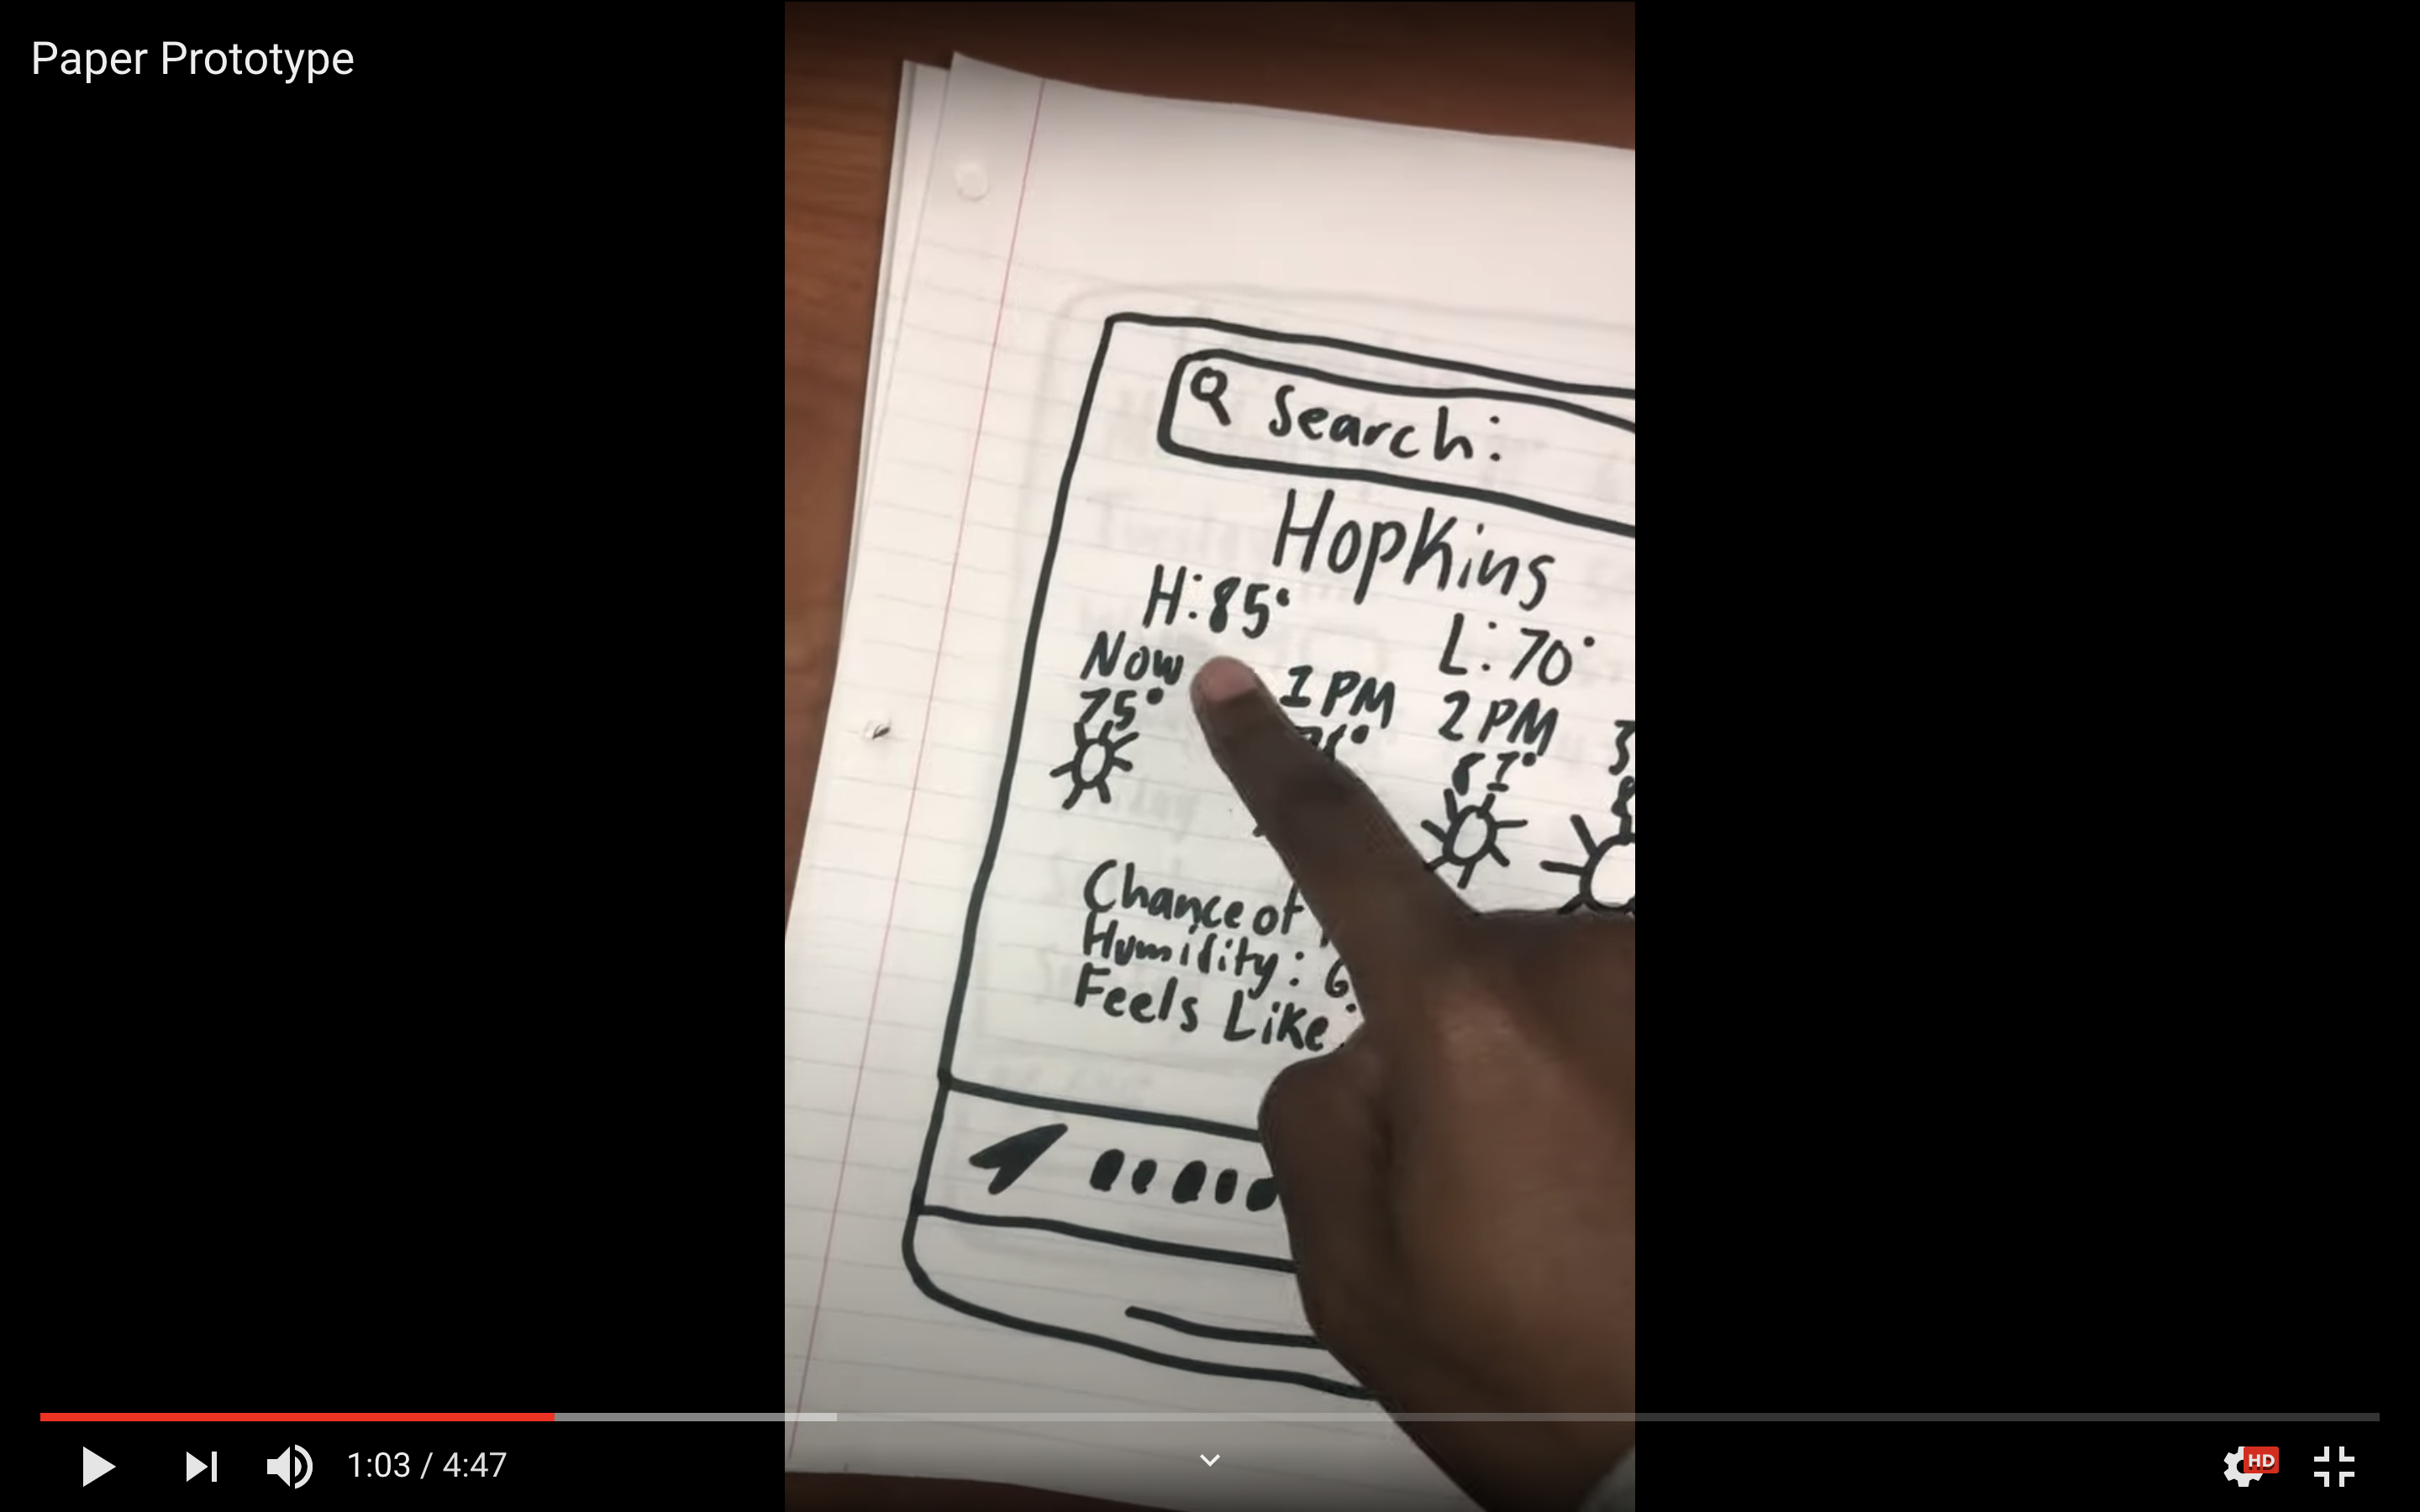 Paper Prototype
Search:
Hopkins
H:85° L:70°
Now 1PM 2PM
75° 81°
Chance of
Humidity: 6
Feels Like
1:03 / 4:47
HD